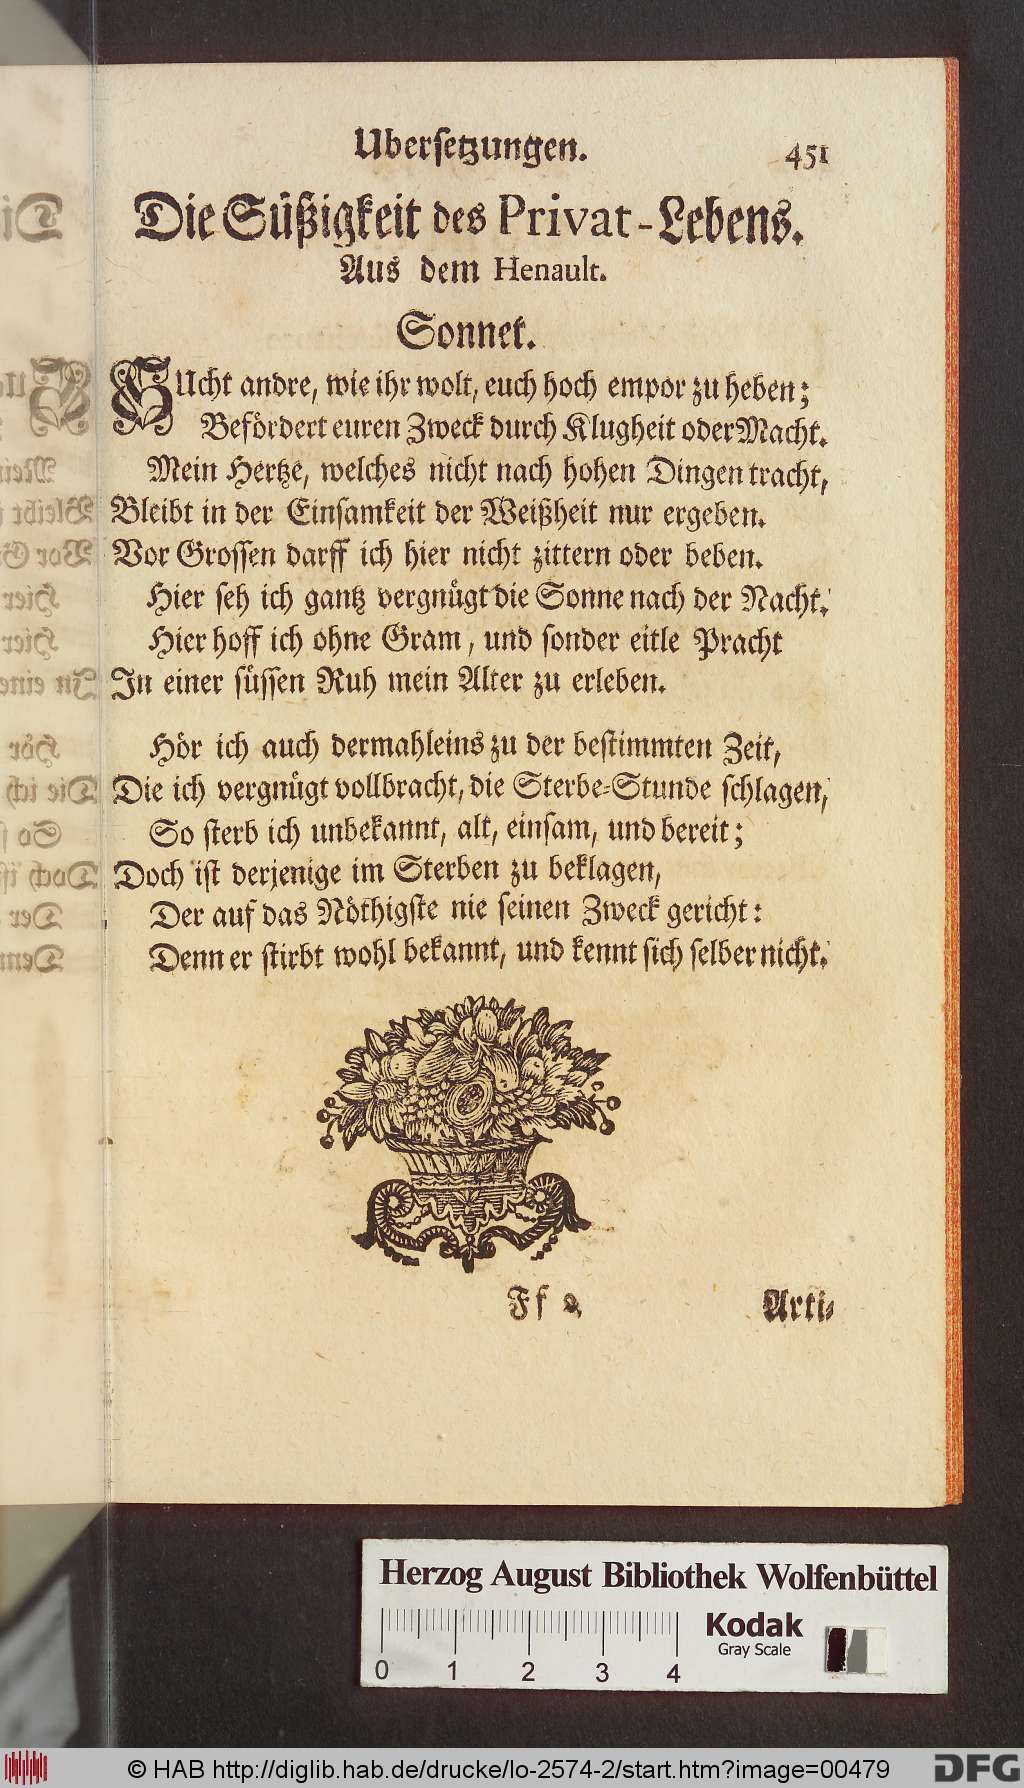 Ubersetzungen. 451
Die Süßigkeit des Privat-Lebens.
Aus dem Henault.
Sonnet.
SUcht andre, wie ihr wolt, euch hoch empor zu heben;
Befördert euren Zweck durch Klugheit oder Macht.
Mein Hertze, welches nicht nach hohen Dingen tracht,
Bleibt in der Einsamkeit der Weißheit nur ergeben.
Vor Grossen darff ich hier nicht zittern oder beben.
Hier seh ich gantz vergnügt die Sonne nach der Nacht.
Hier hoff ich ohne Gram, und sonder eitle Pracht
In einer süssen Ruh mein Alter zu erleben.
Hör ich auch dermahleins zu der bestimmten Zeit,
Die ich vergnügt vollbracht, die Sterbe-Stunde schlagen,
So sterb ich unbekannt, alt, einsam, und bereit;
Doch ist derjenige im Sterben zu beklagen,
Der auf das Nöthigste nie seinen Zweck gericht:
Denn er stirbt wohl bekannt, und kennt sich selber nicht.
Ff 2 Arti-
Herzog August Bibliothek Wolfenbüttel
Kodak
Gray Scale
0 1 2 3 4
© HAB http://diglib.hab.de/drucke/lo-2574-2/start.htm?image=00479
DFG